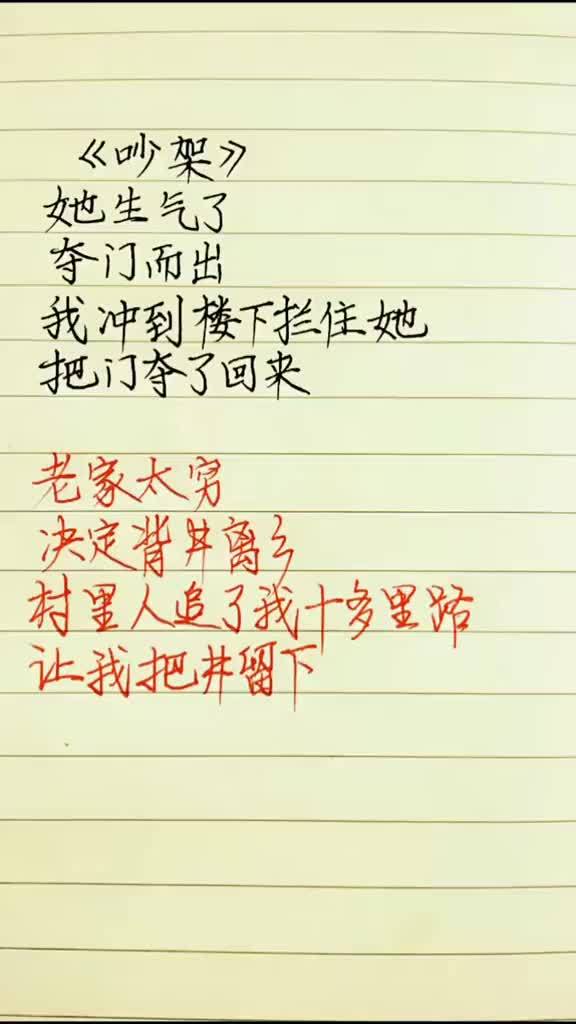 《吵架》
她生气了
夺门而出
我冲到楼下拦住她
把门夺了回来
老家太穷
决定背井离乡
村里人追了我十多里路
让我把井留下